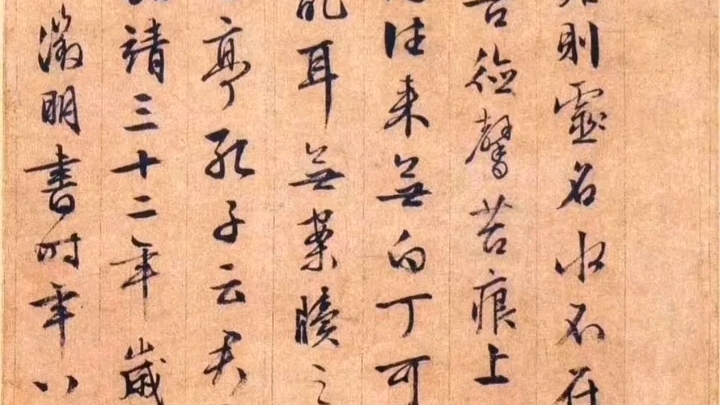 則靈名水不在
吾德馨苔痕上
往來無白丁可
亂耳無案牘之
亭孔子云君
靖三十二年歲
徵明書時年八